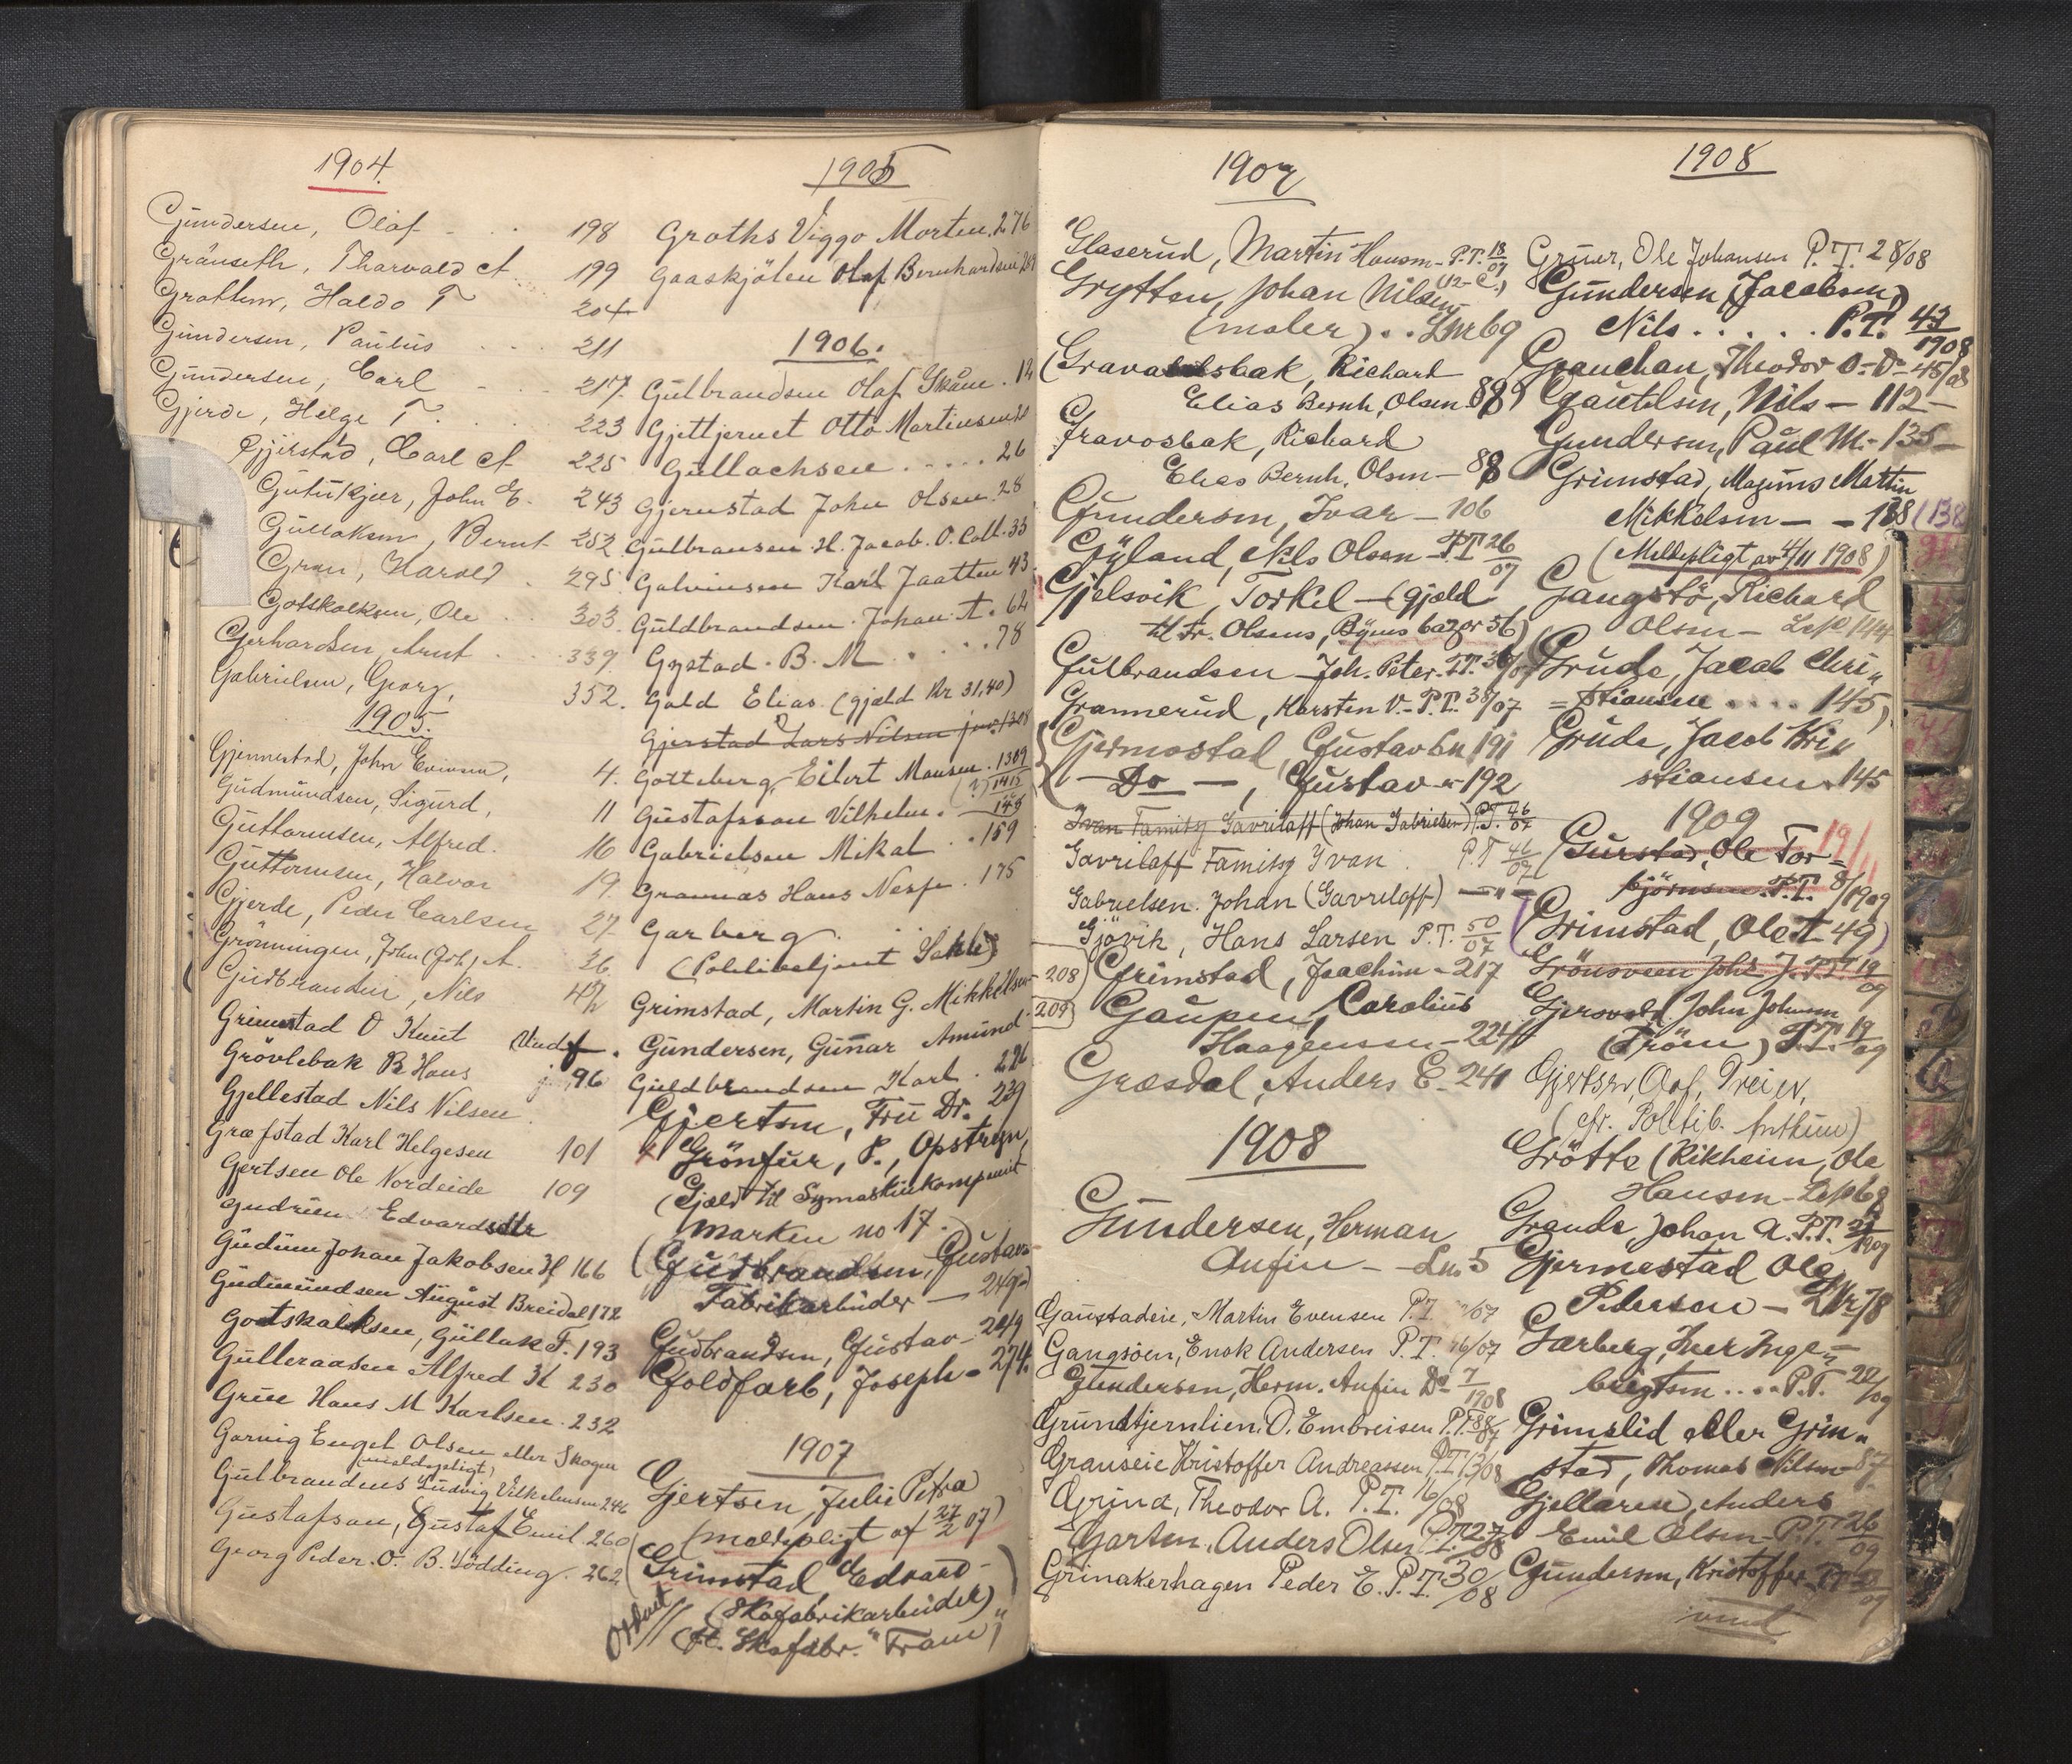 1904.
Gundersen, Olaf - . . 198
Gränseth, Tharvald A 199
Grøttum, Haldo T 204
Gundersen, Paulus . . . 211
Gundersen, Carl - . 217.
Gjerde, Helge T. . . . 223
Gjerstad, Carl A 225
Gutukjær, John E. 243
Gullaksen, Bernt 252
Gran, Harald . 295
Gotskalksen, Ole . . 303.
Gerhardsen, Arnt . . . . 339
Gabrielsen, Georg, 352.
1905.
Gjennestad, John Evensen, 4.
Gudmundsen, Sigurd, 11
Guttormsen, Alfred. 16
Guttormsen, Halvor 19.
Gjerde, Peder Carlsen 27
Grönningen, John (Joh) A. 36
Gudbrandsen, Nils 47
Grimstad O Knut
Grövlebak B Hans 96
Gjellestad Nils Nilsen
Græfstad Karl Helgesen 101
Gertsen Ole Nordeide 109
Gudrun Edvardsdtr
Gudim Johan Jakobsen H 166
Gudmundsen August Breidal 172
Gotskalksen, Gullak F. 193
Gulleraasen Alfred K 230
Grue Hans M Karlsen. 232
Garvig Engel Olsen eller Skogen
(meldepligt)
Gulbrandens Ludvig Vilhelmsen 246
Gustafsson, Gustaf Emil 260
Georg Peder. O. B. Södding. 262
1905
Groths Viggo Morten. 276
Gaaskjölen Olaf Bernhardsen
1906.
Gulbrandsen Olaf Skåne. 12
Gjettjernet Otto Martinsen
Gullachsen . . . . . 26
Gjerustad John Olsen. 28
Gulbransen H. Jacob. O. Call. 35
Galvinsen Karl Jaatten 43
Guldbrandsen. Johan A. 62
Gystad. B. M . . . . . 78
Gold Elias (gjæld Kr 31,40)
Gjerstad Lars Nilsen jun. 1308
Gotteberg, Eilert Monsen. 1309
(?) 1415
Gustafsson Vilhelm. 148
Gabrielsen Mikal . . 159
Grannas Hans Nesje. 175
Garberg. . .
(Politibetjent
Grimstad, Martin G. Mikkelsen 208
Gundersen, Gunar Amund 209
Guldbrandsen Karl. 226
Gjertsen, Fru Dr. 239
Grönfur, P., Opstryn,
(Gjæld til Symaskinkompaniet
Marken no 17.
(Gudbrandsen, Gustav
Fabrikarbeider — 249)
Gudbrandsen, Gustav - 249
Goldfarb, Joseph - 274.
1907
Gjertsen, Julie Petra
(meldepligt af 27/2 07)
(Grimstad, Edvard -
(Skofabrikarbeider)
(ft. Skofabr. "Fram"
1907
Glaserud, Martin Hansen - P.T. 18/07
Grytten, Johan Nilsen
(maler) . . Lnr 69
(Gravasbak, Richard
Elias Bernh, Olsen. 88)
Gravosbak, Richard
Elias Bernh, Olsen - 88
Gundersen, Ivar - 106
Gyland, Nils Olsen - P.T. 26/07
Gjelsvik, Torkil - (gjæld
til Fr. Olsens, Byens bazar 56)
Gulbrandsen Joh. Peter. P.T. 36/07
Grannerud, Karsten V. - P.T. 38/07
Gjermostal, Gustav 191
— Do —, Gustav - 192
Ivan Famitsy Gavrilaff (Johan Gabrielsen) P.T. 46/07
Gavrilaff Famitsy Ivan . P.T 46/07
Gabrielsen. Johan (Gavriloff) — " —
Gjövik, Hans Larsen P.T. 50/07
Grimstad, Joachim - 217
Gaupen, Carolius
Haagensen - 224
Græsdal, Anders E - 241
1908
Gundersen, Herman
Anfin - - Lnr 5
Gaustadeie, Martin Evensen P.T. /07
Gangsöen, Enok Andersen P.T. 46/07
Gundersen, Herm. Anfin Do 7/1908
Grundtjernlien, O. Embreisen P.T. 88/07
Granseie Kristoffer Andreassen P.T 13/08
Grind, Theodor A. P.T. 16/08
Garten, Anders Olsen P.T. 27/08
Grinakerhagen Peder E. P.T. 30/08
1908
Gruer, Ole Johansen P.T. 28/08
Gundersen (Jacobsen)
Nils . . . . . P.T. 43/1908
Grauchan, Theodor O - Do - 45/08
Gautelsen, Nils - 112 -
Gundersen, Paul M. - 135 -
Grimstad, Magnus Martin
Mikkelsen - - 138 (138
(Meldepligt av 4/11 1908)
Gangstö, Richard
Olsen - Lnr 144
(Grude, Jacob Chri"
= stiansen . . . . 145)
Grude, Jacob Kri"
stiansen 145
1909
(Gurstad, Ole Tor-
björnsen. P.T. 8/1909
Grimstad, Ole A 49)
Grönsveen Johs J. P.T. 19/09
Gjersvold John Johnsen
(Fröen) P.T. 19/09
Gjertsen, Olaf, Dreier,
(cfr. Politib. Anthun)
Grötte (Rikheim, Ole
Hansen - Lnr 62
Grande, Johan A. P.T. 22/1909
Gjermestad Ole
Pedersen - LNr 78
Garberg, Iver Inge-
brigtsen . . . . P.T. 22/09
Grimslid eller Grim"
stad, Thomas Nilsen - 87
Gjellarese, Anders
Emil Olsen - P.T. 26/09
Gundersen, Kristoffer - P.T.
vend